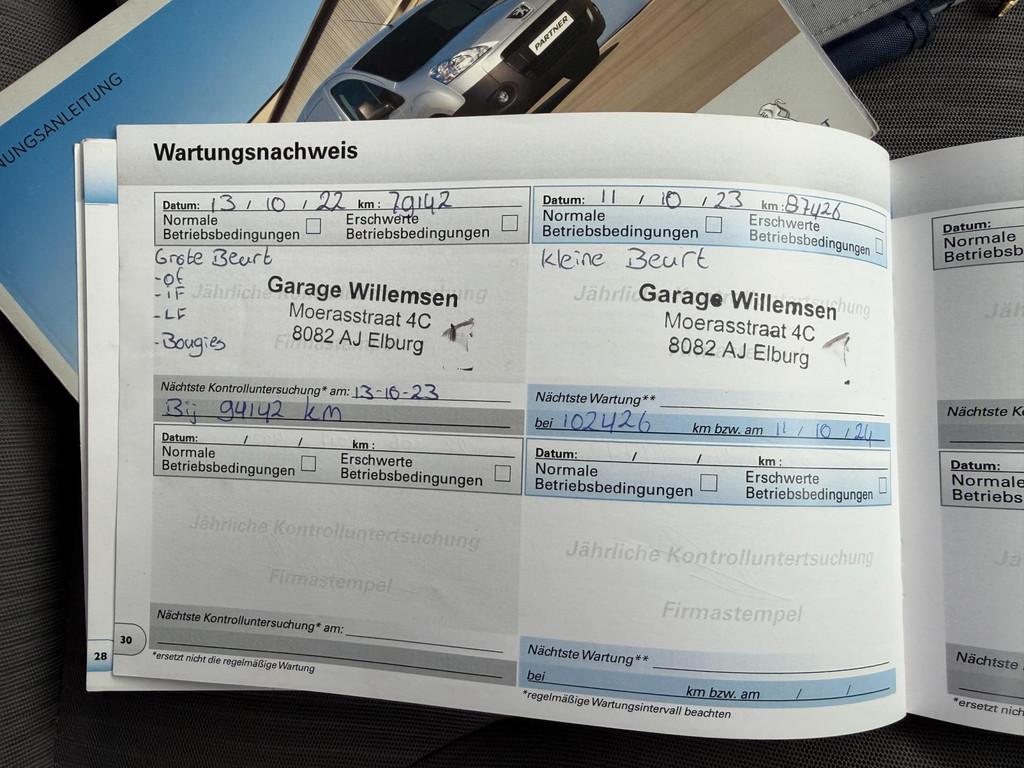 NUNGSANLEITUNG
PARTNER
Wartungsnachweis
Datum: 13 / 10 / 22 km: 79142
Normale Betriebsbedingungen
Erschwerte Betriebsbedingungen
Grote Beurt
-OF
-IF
-LF
-Bougies
Jährliche Kontrolluntersuchung
Firmastempel
Garage Willemsen
Moerasstraat 4C
8082 AJ Elburg
Nächtste Kontrolluntersuchung* am: 13-10-23
Bij 94142 km
Datum: 11 / 10 / 23 km: 87426
Normale Betriebsbedingungen
Erschwerte Betriebsbedingungen
Kleine Beurt
Jährliche Kontrolluntertsuchung
Garage Willemsen
Moerasstraat 4C
8082 AJ Elburg
Nächtste Wartung**
bei 102426 km bzw. am 11 / 10 / 24
Datum: / / km:
Normale Betriebsbedingungen
Erschwerte Betriebsbedingungen
Jährliche Kontrolluntersuchung
Firmastempel
Nächtste Kontrolluntersuchung* am:
*ersetzt nicht die regelmäßige Wartung
Datum: / / km:
Normale Betriebsbedingungen
Erschwerte Betriebsbedingungen
Jährliche Kontrolluntertsuchung
Firmastempel
Nächtste Wartung**
bei km bzw. am / /
*regelmäßige Wartungsintervall beachten
30
28
Datum:
Normale
Betriebsb
Jäh
Nächtste Ko
Datum:
Normale
Betriebs
Jä
Nächtste
*ersetzt nich